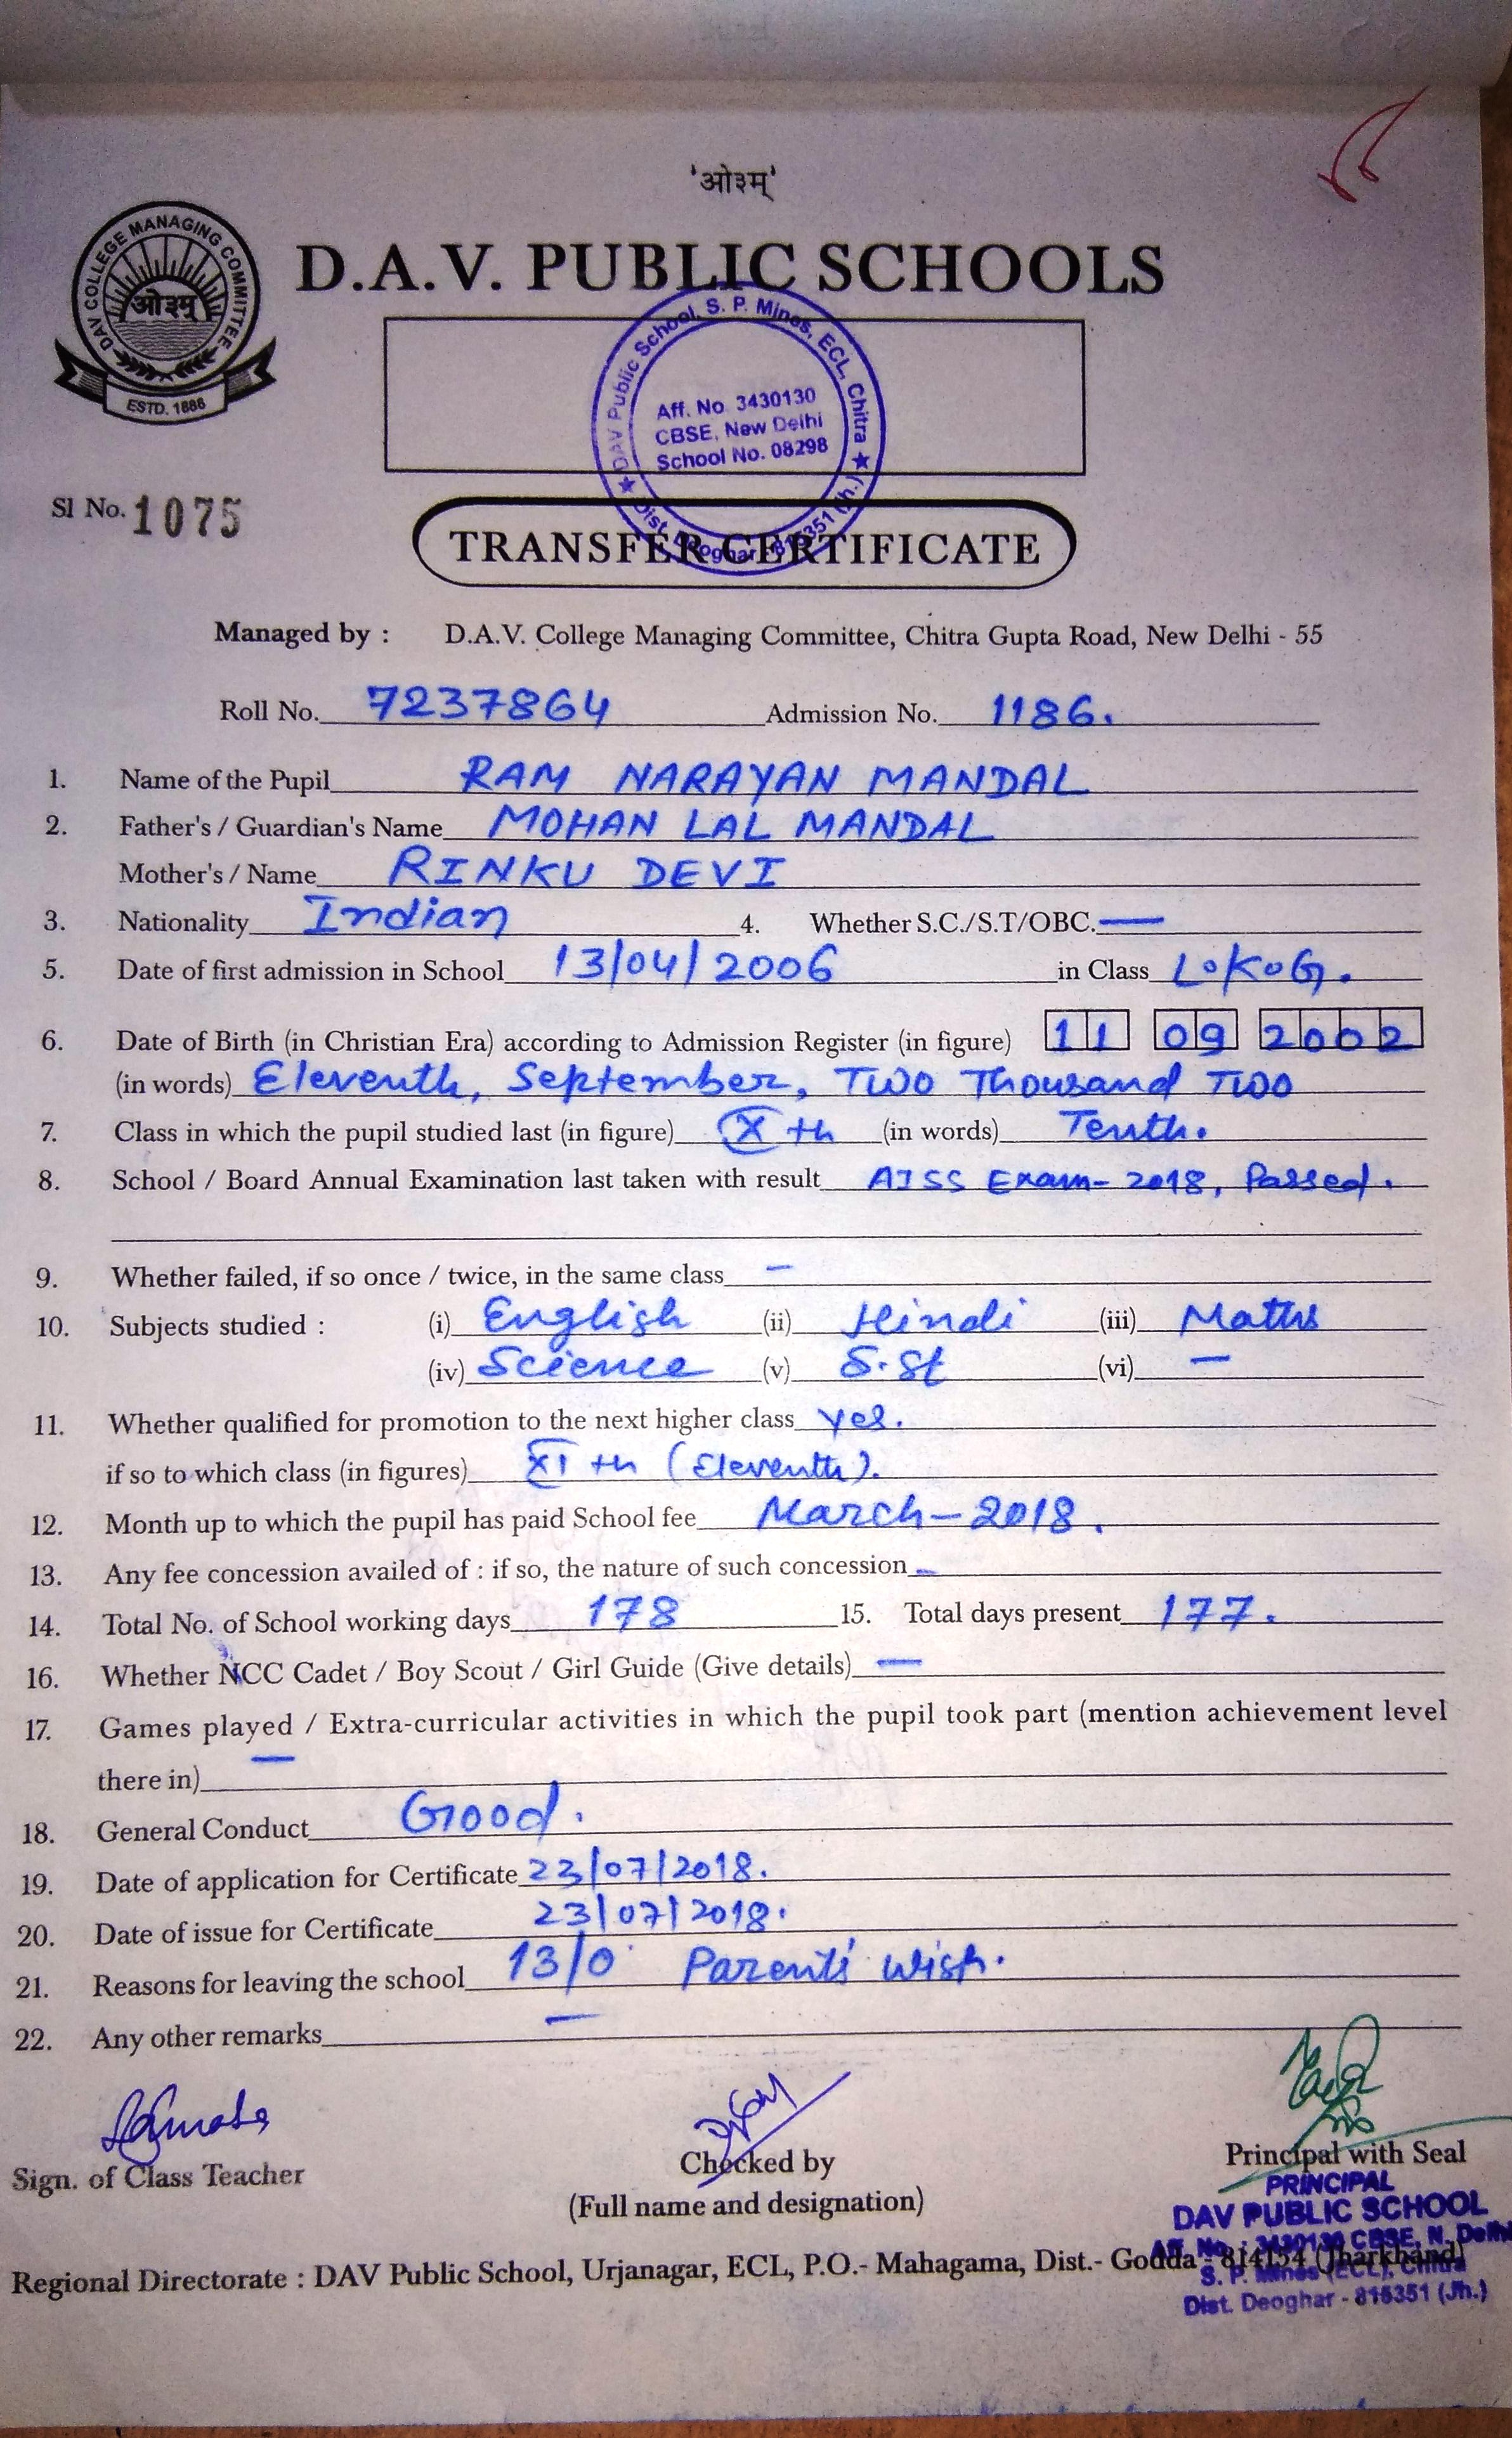 'ओ३म्'
DAV COLLEGE MANAGING COMMITTEE
ओ३म्
ESTD. 1886
D.A.V. PUBLIC SCHOOLS
DAV Public School, S. P. Mines, ECL, Chitra
Dist. Deoghar - 815351 (Jh.)
Aff. No. 3430130
CBSE, New Delhi
School No. 08298
Sl No. 1075
TRANSFER CERTIFICATE
Managed by : D.A.V. College Managing Committee, Chitra Gupta Road, New Delhi - 55
Roll No. 7237864 Admission No. 1186.
1. Name of the Pupil RAM NARAYAN MANDAL
2. Father's / Guardian's Name MOHAN LAL MANDAL
Mother's / Name RINKU DEVI
3. Nationality Indian 4. Whether S.C./S.T/OBC. —
5. Date of first admission in School 13/04/2006 in Class L.K.G.
6. Date of Birth (in Christian Era) according to Admission Register (in figure) 11 09 2002
(in words) Eleventh, September, Two Thousand Two
7. Class in which the pupil studied last (in figure) X th (in words) Tenth.
8. School / Board Annual Examination last taken with result AISS Exam- 2018, Passed.
9. Whether failed, if so once / twice, in the same class —
10. Subjects studied : (i) English (ii) Hindi (iii) Maths
(iv) Science (v) S.St (vi) —
11. Whether qualified for promotion to the next higher class yes.
if so to which class (in figures) XI th (Eleventh).
12. Month up to which the pupil has paid School fee March-2018.
13. Any fee concession availed of : if so, the nature of such concession —
14. Total No. of School working days 178 15. Total days present 177.
16. Whether NCC Cadet / Boy Scout / Girl Guide (Give details) —
17. Games played / Extra-curricular activities in which the pupil took part (mention achievement level
there in) —
18. General Conduct Good.
19. Date of application for Certificate 23/07/2018.
20. Date of issue for Certificate 23/07/2018.
21. Reasons for leaving the school 13/0 Parents' wish.
22. Any other remarks —
Sign. of Class Teacher
Checked by
(Full name and designation)
Principal with Seal
PRINCIPAL
DAV PUBLIC SCHOOL
Aff. No. : 3430130 CBSE, N. Delhi
S. P. Mines (ECL), Chitra
Dist. Deoghar - 815351 (Jh.)
Regional Directorate : DAV Public School, Urjanagar, ECL, P.O.- Mahagama, Dist.- Godda - 814154 (Jharkhand)